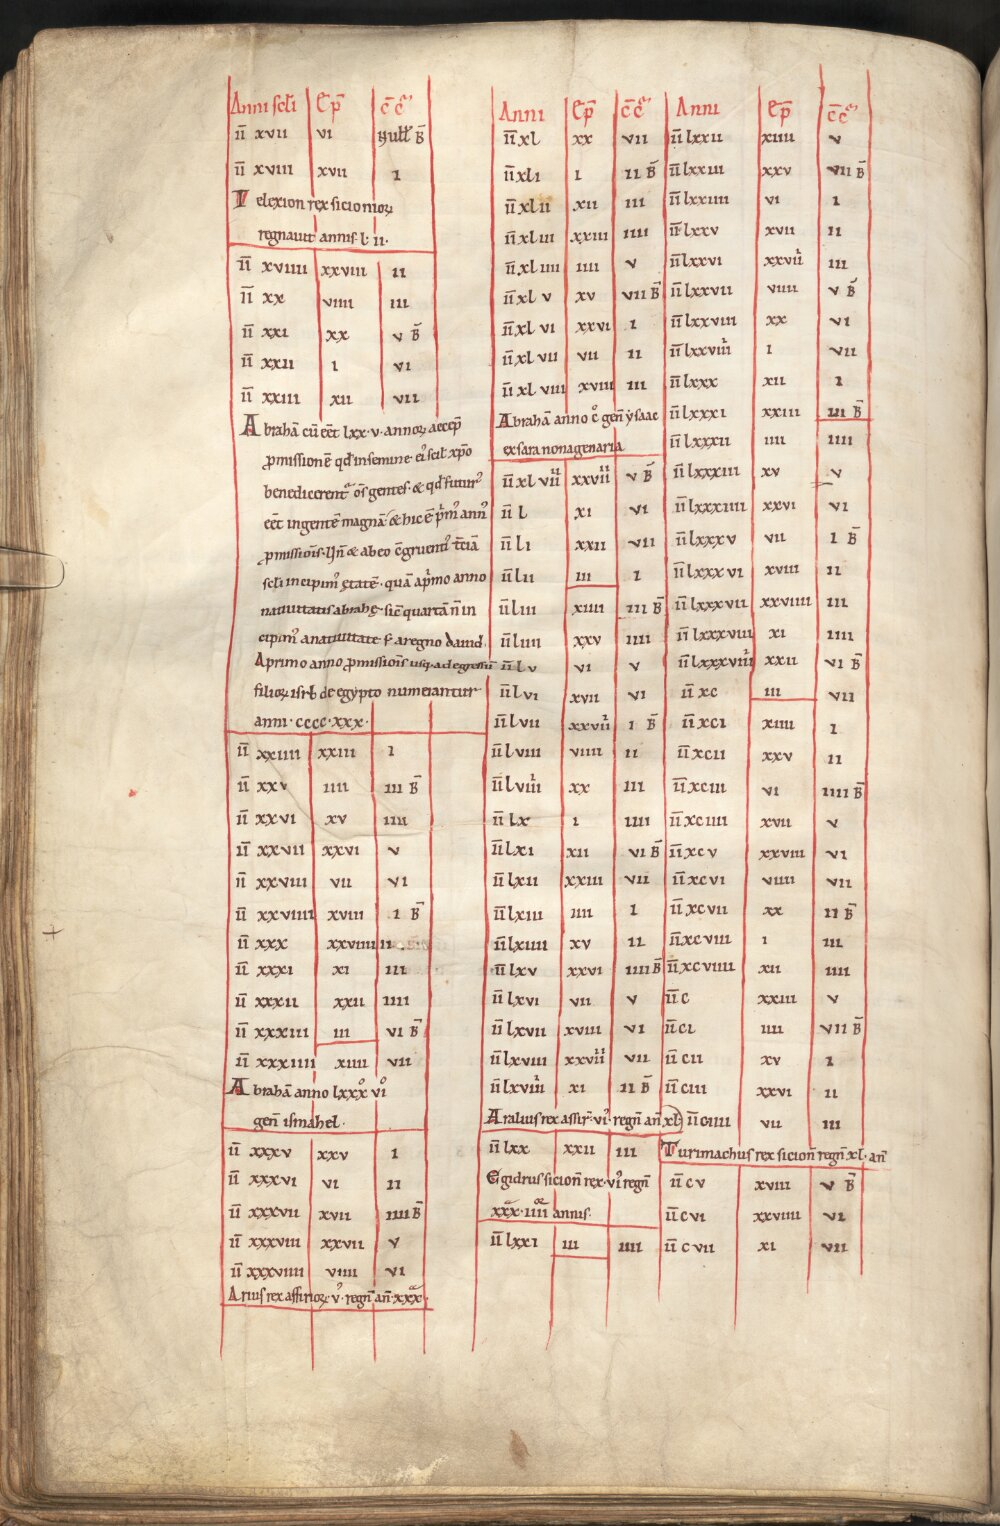 Anni scl̄i Ep̄ c̄c̄
īī xvii vi Null' B̄
īī xviii xvii i
Telexion rex sicionioꝝ
regnavit annis· l· ii·
īī xviiii xxviii ii
īī xx viiii iii
īī xxi xx v B̄
īī xxii i vi
īī xxiii xii vii
Abrahā cū eēt lxx·v·annoꝝ accep̄
ꝓmissionē qd̄ in semine· ei' scil' xp̄o
benedicerent' om̄s gentes· & qd̄ futur'
eēt in gentē magnā· & hic ē p'm' ann'
ꝓmissiōis· & ab eo c̄gruent' t̄ciā
scl̄i incipim' ętatē· quā ap'mo anno
nativitatis abrahę· sic̄ quartā n̄ in
cipim' a nativitate s; a regno david
A primo anno ꝓmissiōis usq; ad egressū
filioꝝ isrl̄ de egẏpto numerantur
anni· cccc·xxx·
īī xxiiii xxiii i
īī xxv iiii iii B̄
īī xxvi xv iiii
īī xxvii xxvi v
īī xxviii vii vi
īī xxviiii xviii i B̄
īī xxx xxviiii ii
īī xxxi xi iii
īī xxxii xxii iiii
īī xxxiii iii vi B̄
īī xxxiiii xiiii vii
Abrahā anno lxxx°vi°
gen̄ ismahel·
īī xxxv xxv i
īī xxxvi vi ii
īī xxxvii xvii iiii B̄
īī xxxviii xxvii v
īī xxxviiii viiii vi
Arius rex assirioꝝ v' regn̄ an̄·xxx·
Anni Ep̄ c̄c̄
īī xl xx vii
īī xli i ii B̄
īī xlii xii iii
īī xliii xxiii iiii
īī xliiii iiii v
īī xlv xv vii B̄
īī xlvi xxvi i
īī xlvii vii ii
īī xlviii xviii iii
Abrahā anno c̊ gen̄ ẏsaac
ex sara nonagenaria
īī xlviiii xxviiii v B̄
īī l xi vi
īī li xxii vii
īī lii iii i
īī liii xiiii iii B̄
īī liiii xxv iiii
īī lv vi v
īī lvi xvii vi
īī lvii xxviii i B̄
īī lviii viiii ii
īī lviiii xx iii
īī lx i iiii
īī lxi xii vi B̄
īī lxii xxiii vii
īī lxiii iiii i
īī lxiiii xv ii
īī lxv xxvi iiii B̄
īī lxvi vii v
īī lxvii xviii vi
īī lxviii xxviiii vii
īī lxviiii xi ii B̄
Aralius rex assir̄· vi' regn̄ an̄ xl·
īī lxx xxii iii
Egidrus sicion̄ rex· vi' regn̄
xxx·iiii annis·
īī lxxi iii iiii
Anni Ep̄ c̄c̄
īī lxxii xiiii v
īī lxxiii xxv vii B̄
īī lxxiiii vi i
īī lxxv xvii ii
īī lxxvi xxviii iii
īī lxxvii viiii v B̄
īī lxxviii xx vi
īī lxxviiii i vii
īī lxxx xii i
īī lxxxi xxiii iii B̄
īī lxxxii iiii iiii
īī lxxxiii xv v
īī lxxxiiii xxvi vi
īī lxxxv vii i B̄
īī lxxxvi xviii ii
īī lxxxvii xxviiii iii
īī lxxxviii xi iiii
īī lxxxviiii xxii vi B̄
īī xc iii vii
īī xci xiiii i
īī xcii xxv ii
īī xciii vi iiii B̄
īī xciiii xvii v
īī xcv xxviii vi
īī xcvi viiii vii
īī xcvii xx ii B̄
īī xcviii i iii
īī xcviiii xii iiii
īī c xxiii v
īī ci iiii vii B̄
īī cii xv i
īī ciii xxvi ii
īī ciiii vii iii
Turimachus rex sicion̄ regn̄ xl· an̄
īī cv xviii v B̄
īī cvi xxviiii vi
īī cvii xi vii